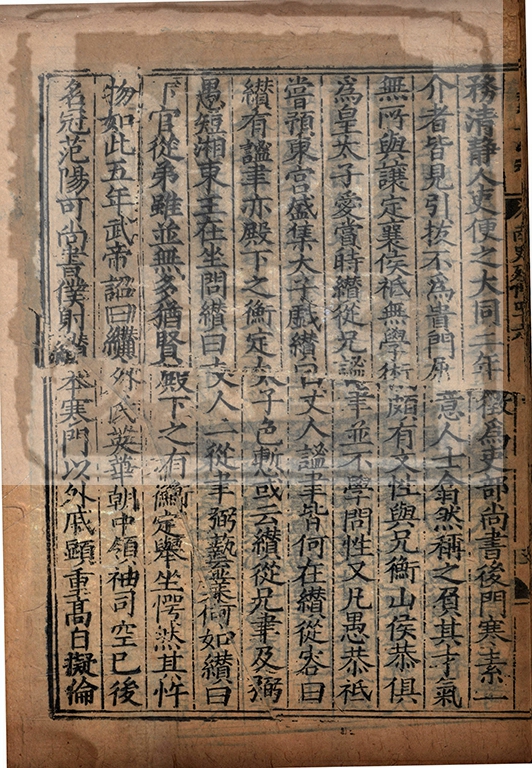 務清静人吏便之大同二年徵爲吏部尚書後門寒素一
介者皆見引拔不爲貴門屈意人士翕然稱之負其才氣
無所與讓定襄侯祗無學術頗有文性與兄衡山侯恭俱
爲皇太子愛賞時纉從兄謐聿並不學問性又凡愚恭祗
嘗預東宫盛集太子戲纉曰丈人謐聿皆何在纉從容曰
纉有謐聿亦殿下之衡定太子色慙或云纉從兄聿及弼
愚短湘東王在坐問纉曰丈人二從聿弼藝業何如纉曰
下官從弟雖並無多猶賢殿下之有衡定舉坐愕然其忤
物如此五年武帝詔曰纉外氏英華朝中領袖司空已後
名冠范陽可尚書僕射纉本寒門以外戚顯重髙自擬倫